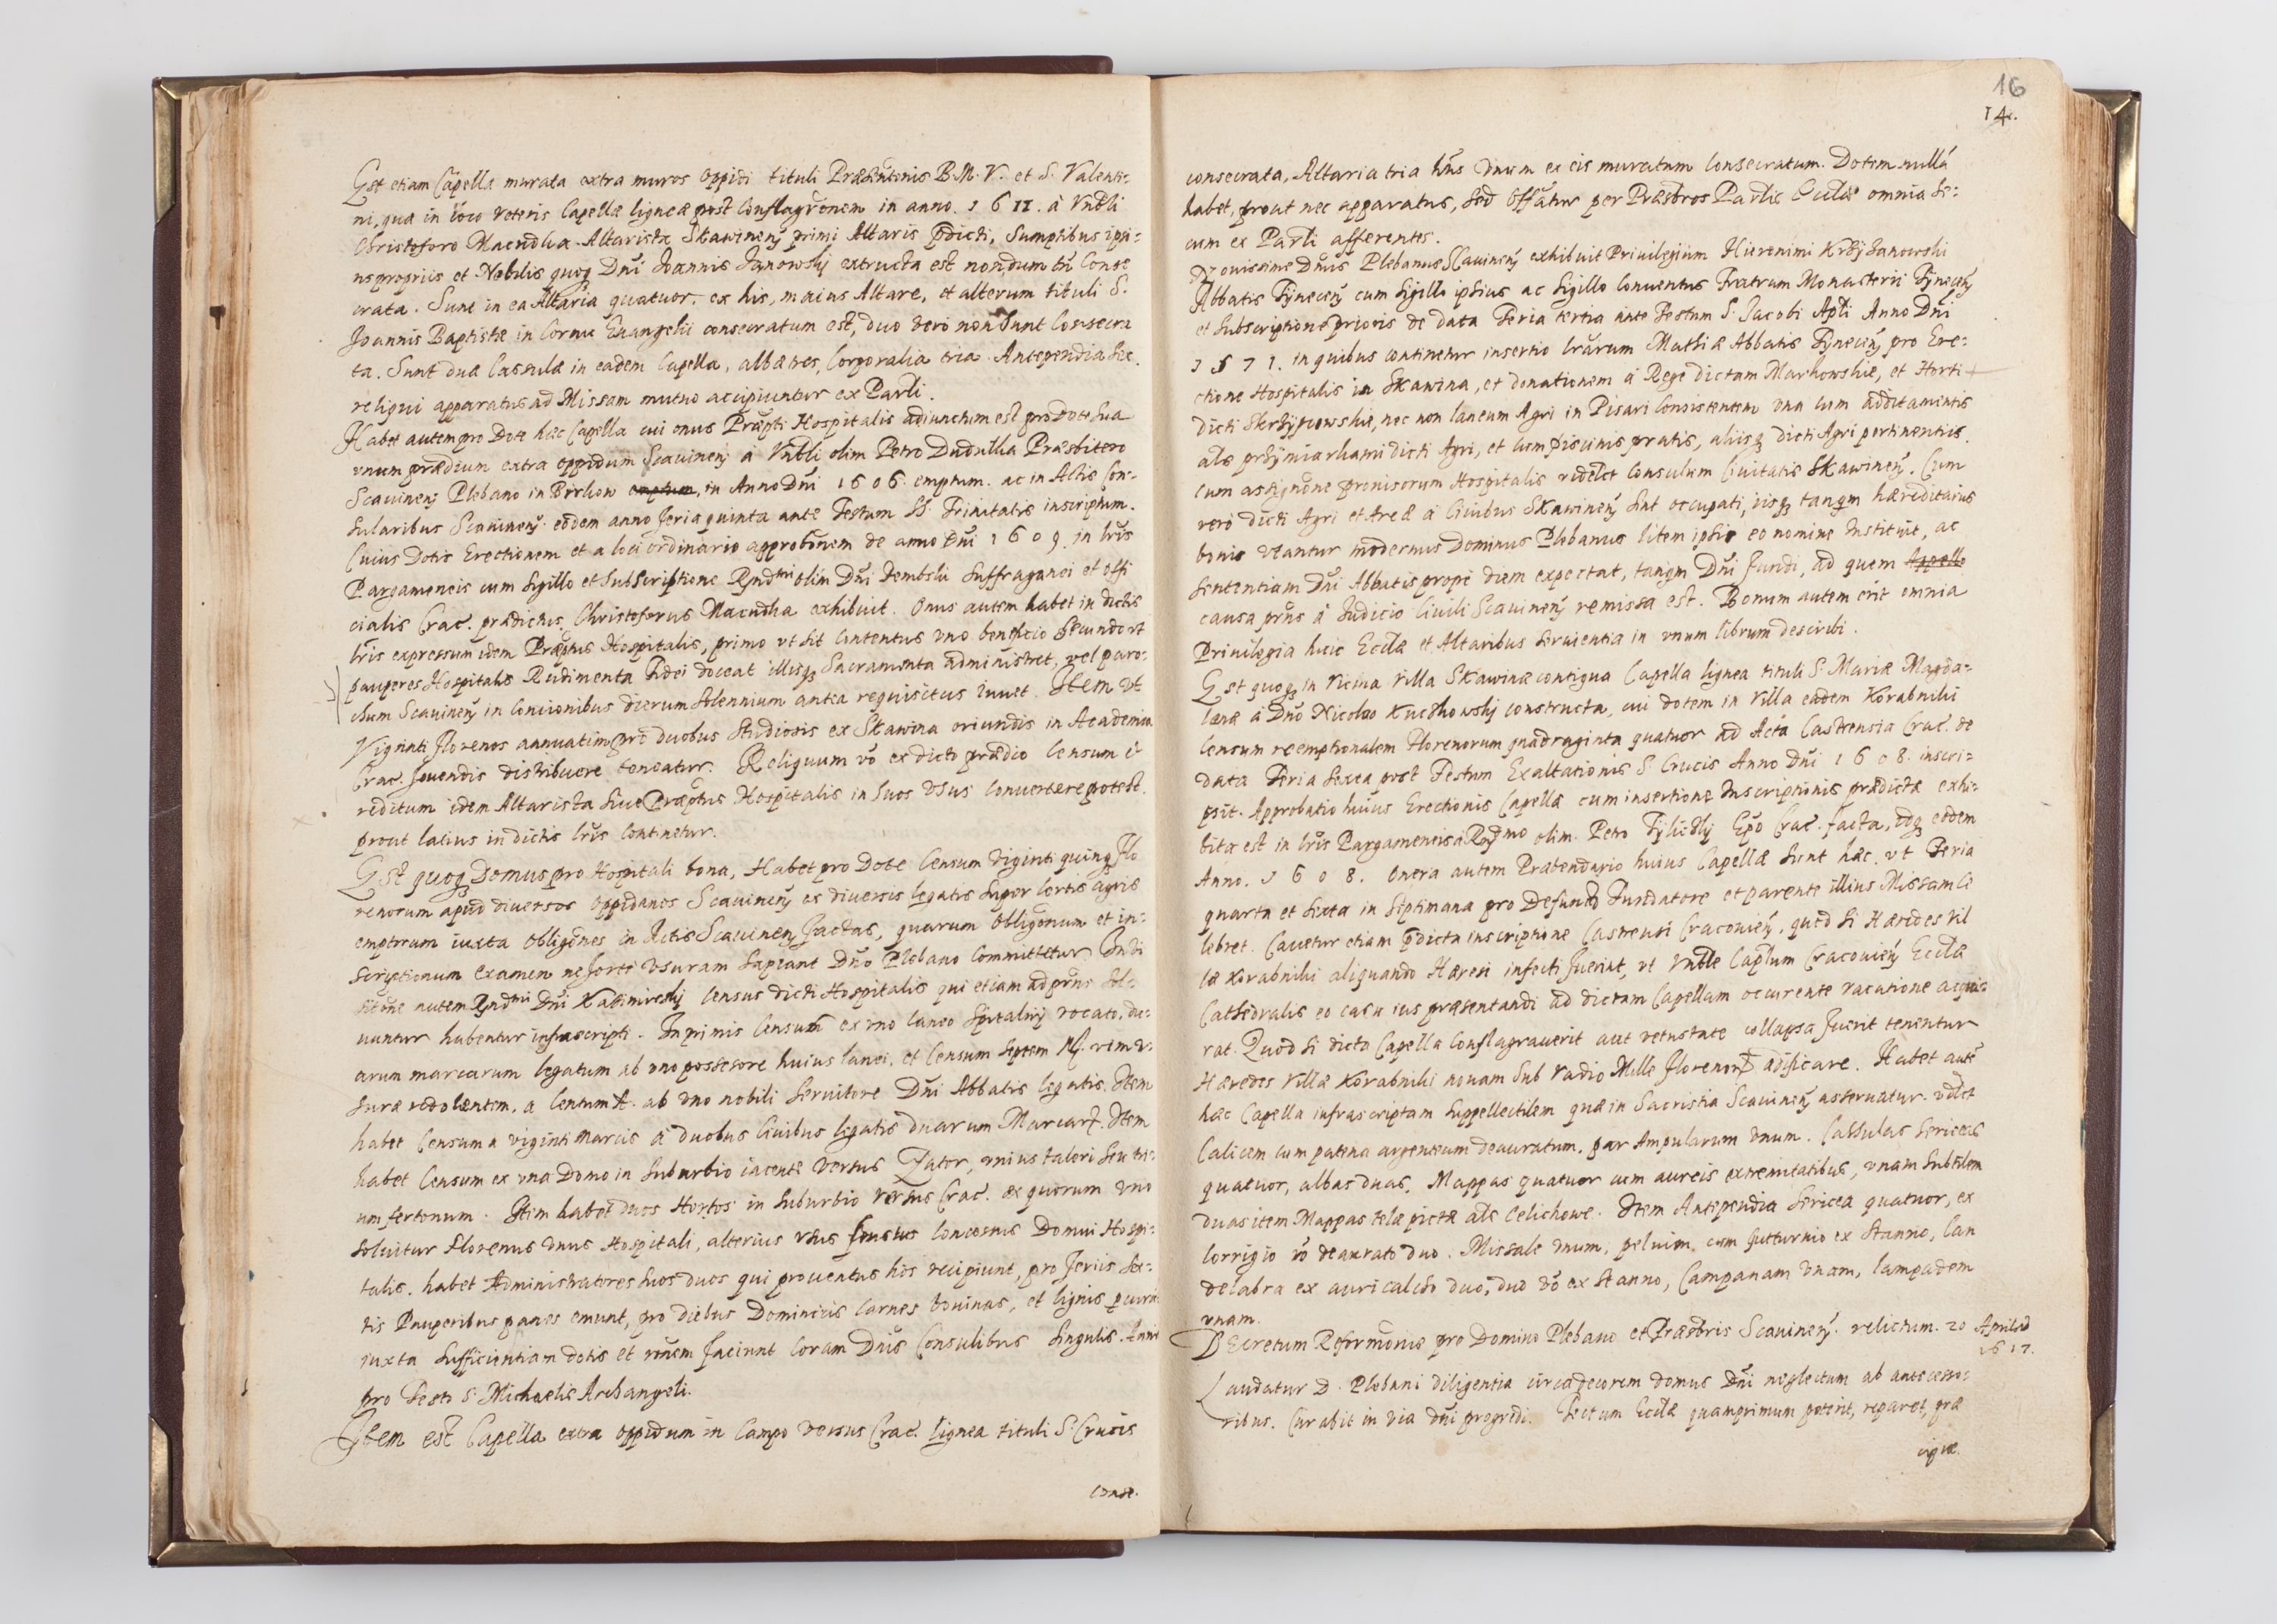 Est etiam Capella murata extra muros oppidi tituli Præsentõnis B. M. V. et S. Valenti-
ni, qua in loco veteris Capellæ ligneæ post Conflagrõnem in anno. 1611. à Vnbli
Christoforo Macudka Altarista Skawinenẏ primi Altaris p̃dicti, Sumptibus ipsi-
us proprijs et Nobilis quoq Dñi Joannis Janowskj extructa est nondum tñ Conse
crata. Sunt in ea Altaria quatuor, ex his, maius Altare, et alterum tituli S.
Joannis Baptistæ in Cornu Euangelij consecratum est, duo verò non sunt Consecra
ta. Sunt duæ Casulæ in eadem Capella, albæ tres, Corporalia tria. Antependia sex.
reliqui apparatus ad Missam mutuo accipiuntur ex Parli.
Habet autem pro Dote hæc Capella cui onus Præpti Hospitalis adiunctum est pro Dote sua
vnum prædium extra oppidum Scauinenẏ à Vnbli olim Petro Dudulka Præsbitero
Scauinenẏ Plebano in Borkow emptum, in Anno Dñi 1606. emptum. ac in Actis Con-
sularibus Scauinenẏ. eodem anno feria quinta ante Festum SS. Trinitatis inscriptum.
Cuius Dotis Erectionem et a loci ordinario approbõnem de anno Dñi 1609. in lr̃is
Pargameneis cum Sigillo et Subscriptione Rỹndmi olim Dñi Dembskii Suffraganei et offi
cialis Crac. prædictus Christoforus Macudka exhibuit. Onus autem habet in dictis
lr̃is expressum idem Præptus Hospitalis, primo vt sit contentus vno beneficio Secundo vt
pauperes Hospitalis Rudimenta fidei doceat illisq Sacramenta administret, vel paro-
chum Scauinenẏ in Concionibus dierum Solennium antea requisitus iuuet. Item vt
Viginti florenos annuatim pro duobus Studiosis ex Skawina oriundis in Academia
Crac. fouendis distribuere teneatur. Reliquum võ ex dicto prædio Censum et
reditum idem Altarista siue Præptus Hospitalis in suos vsus Conuertere potest.
prout latius in dictis lr̃is Continetur.
Est quoq Domus pro Hospitali bona, Habet pro Dote Censum viginti quinq Flo
renorum apud diuersos oppidanos Scauinenẏ ex diuersis legatis Super Certis agris
emptorum iuxta obligõnes in Actis Scauinenẏ factas, quarum obligõnum et in-
scriptionum examen ne forte vsuram Sapiant Dño Plebano Committetur. Ondi
sitõne autem Rỹndmi Dñi Kazimirskj Census dicti Hospitalis qui etiam ad pr̃ns Sol-
uuntur habentur infrascripti. Inprimis Censum ex vno laneo Spitalnj vocato, du-
arum marcarum legatum ab vno possesore huius lanei. et Censum Septem M. vim v-
suræ redolentem, a Centum M. ab vno nobili Seruitore Dñi Abbatis legatis. Item
habet Censum a viginti Marcis à duobus Ciuibus legatis duarum Marcar. Item
habet Censum ex vna Domo in Suburbio iacente versus Zator, vnius taleri seu tri-
um fertonum. Item habet duos Hortos in Suburbio versus Crac. ex quorum vno
soluitur Florenus vnus Hospitali, alterius vsus fructus Concessus Domui Hospi-
talis. habet Administratores suos duos qui prouentus hos recipiunt, pro ferijs Sex-
tis Pauperibus panes emunt, pro diebus Dominicis Carnes bouinas, et lignis procura
iuxta sufficientiam dotis et rõnem faciunt Coram Dñis Consulibus Singulis Anni
pro Festo S. Michaelis Archangeli.
Item est Capella extra oppidum in Campo versus Crac. lignea tituli S. Crucis
conse.
16
14.
consecrata, Altaria tria hñs vnum ex eis muratum Consecratum. Dotem nullã
habet, prout nec apparatus, sed offiatur per Præsbros Parlis Ecclæ omnia se-
cum ex Parli afferentes.
Nouissime Dñus Plebanus Scauinenẏ exhibuit Priuilegium Hieronimi Krzẏzanowski
Abbatis Tẏnecenẏ cum Sigillo ipsius ac Sigillo Conuentus Fratrum Monasterii Tẏnecenẏ
et Subscriptione prioris de data Feria tertia ante Festum S. Jacobi Apli Anno Dñi
1571. in quibus continetur insertio lr̃arum Mathiæ Abbatis Tẏnecenẏ pro Ere-
ctione Hospitalis in Skawina, et donationem à Rege dictam Markowskie, et Horti
dicti Skrzẏpcowskie, nec non laneum Agri in Pisari Consistentem vna cum additamentis
als przẏmiarkami dicti Agri, et cum piscinis pratis, alijsq dicti Agri pertinentijs.
Cum assignõne prouisorum Hospitalis videlet Consulum Ciuitatis Skawinenẏ. Cum
verò dicti Agri et Areæ à Ciuibus Skawinenẏ sint occupati, ijsq tanqm hæreditarijs
bonis vtantur modernus Dominus Plebanus litem ipsis eo nomine Instituit, ac
sententiam Dñi Abbatis propè diem expectat, tanqm Dñi fundi, ad quem Appello
causa pr̃ns à Iudicio Ciuili Scauinenẏ remissa est. Bonum autem erit omnia
Priuilegia huic Ecclæ et Altaribus seruientia in vnum librum describi.
Est quoq in vicina villa Skawinæ contigua Capella lignea tituli S. Mariæ Magda-
lenæ à Dño Nicolao Kuczkowskj constructa, cui dotem in villa eadem Korabniki
Censum reemptionalem Florenorum quadraginta quatuor ad Acta Castrensia Crac. de
data Feria Sexta post Festum Exaltationis S. Crucis Anno Dñi 1608. inscri-
psit. Approbatio huius Erectionis Capellæ cum insertione Inscriptionis prædictæ exhi-
bita est in lr̃is Pargameneis à Rỹndmo olim. Petro Tẏlickj Ep̃o Crac. facta, idq eodem
Anno. 1608. Onera autem Præbendario huius Capellæ sunt hæc. vt Feria
quarta et Sexta in Septimana pro Defuncto Fundatore et parente illius Missam Ce
lebret. Cauetur etiam p̃dicta inscriptione Castrensi Cracouienẏ, quod si Hæredes vil
læ Korabniki aliquando Hæresi infecti fuerint, vt Vnble Caplum Cracouienẏ Ecclæ
Cathedralis eo casu ius præsentandi ad dictam Capellam occurente vacatione acqui-
rat. Quod si dicta Capella Conflagrauerit aut vetustate collapsa fuerit tenentur
Hæredes villæ Korabniki nouam sub vadio Mille florenor ædificare. Habet autẽ
hæc Capella infrascriptam Suppellectilem quæ in Sacristia Scauinenẏ asseruatur. vdlet
Calicem cum patena argenteum deauratum, par Ampularum vnum. Cassulas sericeas
quatuor, albas duas. Mappas quatuor cum aureis extremitatibus, vnam Subtilem
duas item Mappas telæ pictæ als Celichowe. Item Antependia sericea quatuor, ex
Corrigio võ deaurato duo. Missale vnum, peluim cum gutturnio ex stanno, Can
delabra ex auricalcho duo, duo võ ex stanno, Campanam vnam, lampadem
vnam.
Decretum Reformõnis pro Domino Plebano et Præsbris Scauinenẏ. relictum. 20 Aprilis
1617.
Laudatur D. Plebani diligentia circa decorem domus Dñi neglectam ab antecesso-
ribus. Curabit in via dñi progredi. Tectum Ecclæ quamprimum poterit, reparet, præ
cipuæ.